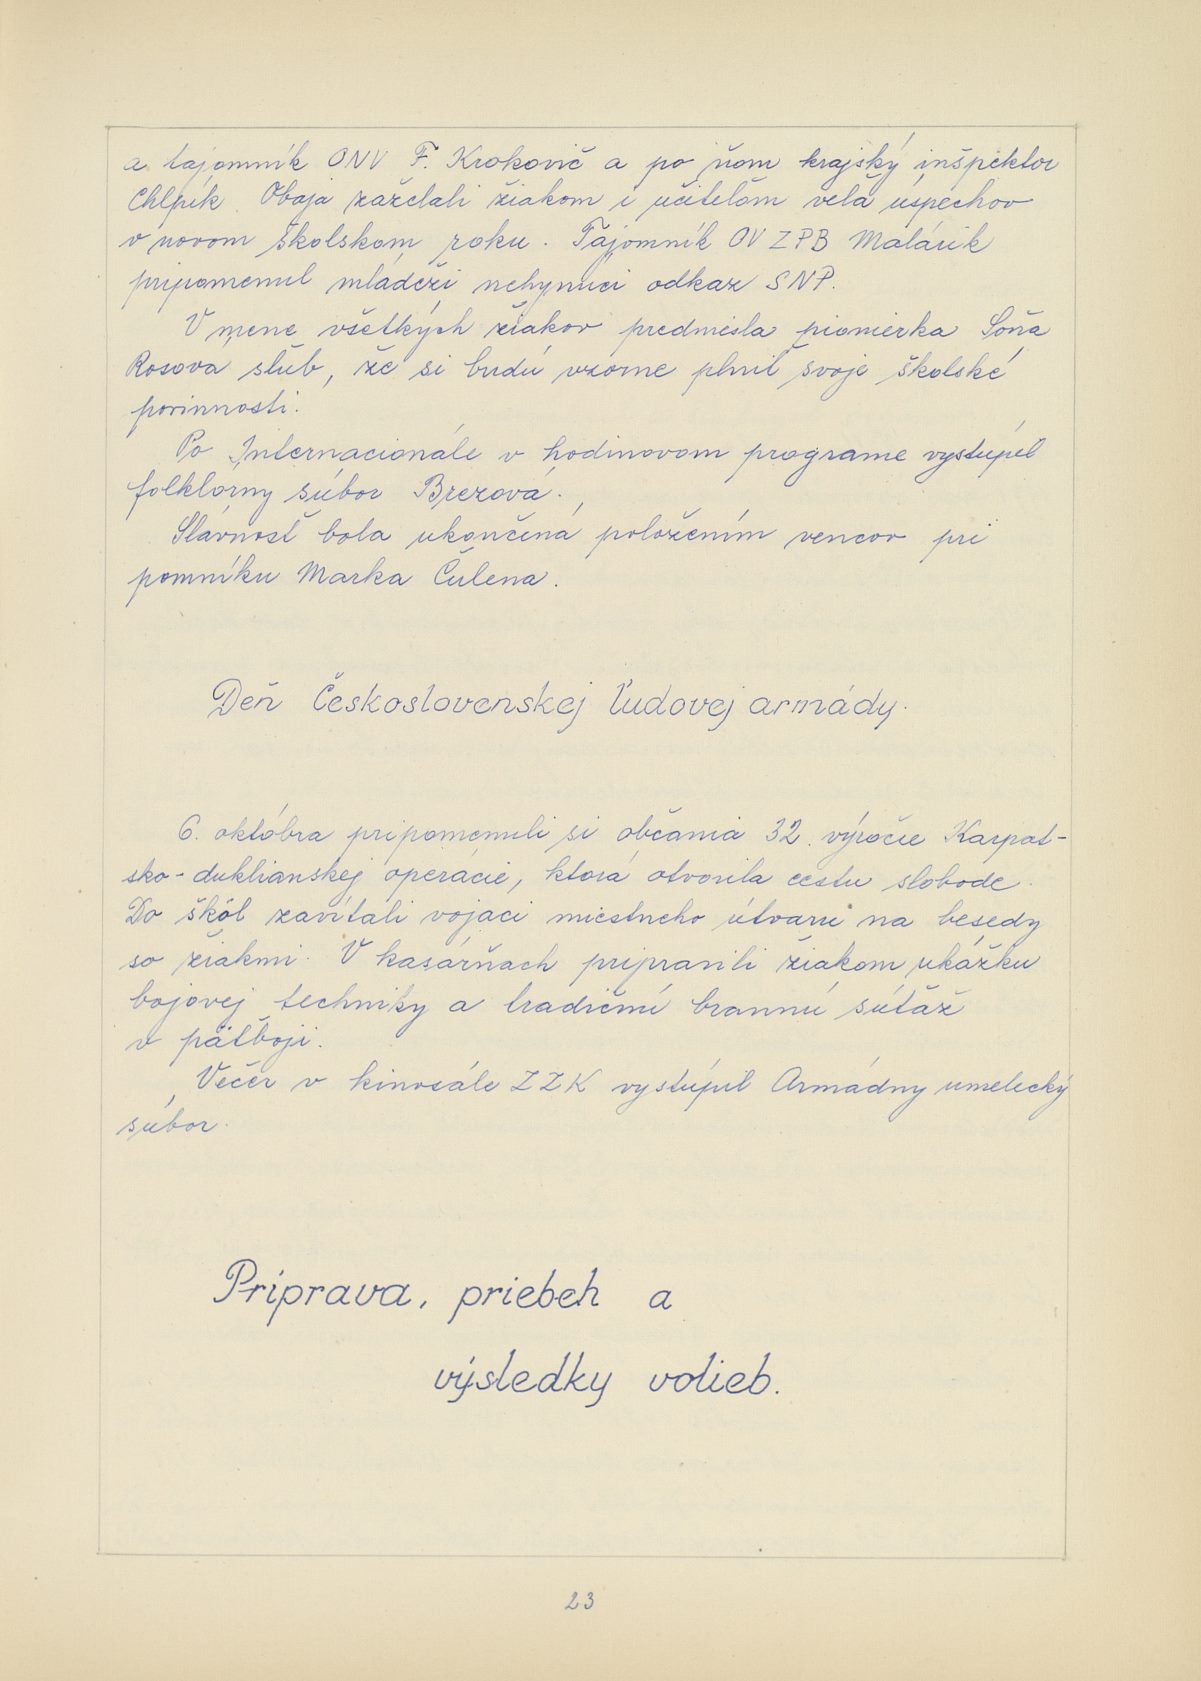 a tajomník ONV F. Krokovič a po ňom krajský inšpektor
Chlpík. Obaja zaželali žiakom i učiteľom veľa úspechov
v novom školskom roku. Tajomník OV ZPB Malárik
pripomenul mládeži nehynúci odkaz SNP.
V mene všetkých žiakov predniesla pionierka Soňa
Rosova sľub, že si budú vzorne plniť svoje školské
povinnosti.
Po Internacionále v hodinovom programe vystúpil
folklórny súbor Brezová.
Slávnosť bola ukončená položením vencov pri
pomníku Marka Čulena.
Deň Československej ľudovej armády.
6. októbra pripomenuli si občania 32. výročie Karpat-
sko-duklianskej operácie, ktorá otvorila cestu slobode.
Do škôl zavítali vojaci miestneho útvaru na besedy
so žiakmi. V kasárňach pripravili žiakom ukážku
bojovej techniky a tradičnú brannú súťaž
v päťboji.
Večer v kinosále ZZK vystúpil Armádny umelecký
súbor.
Príprava, priebeh a
výsledky volieb.
23